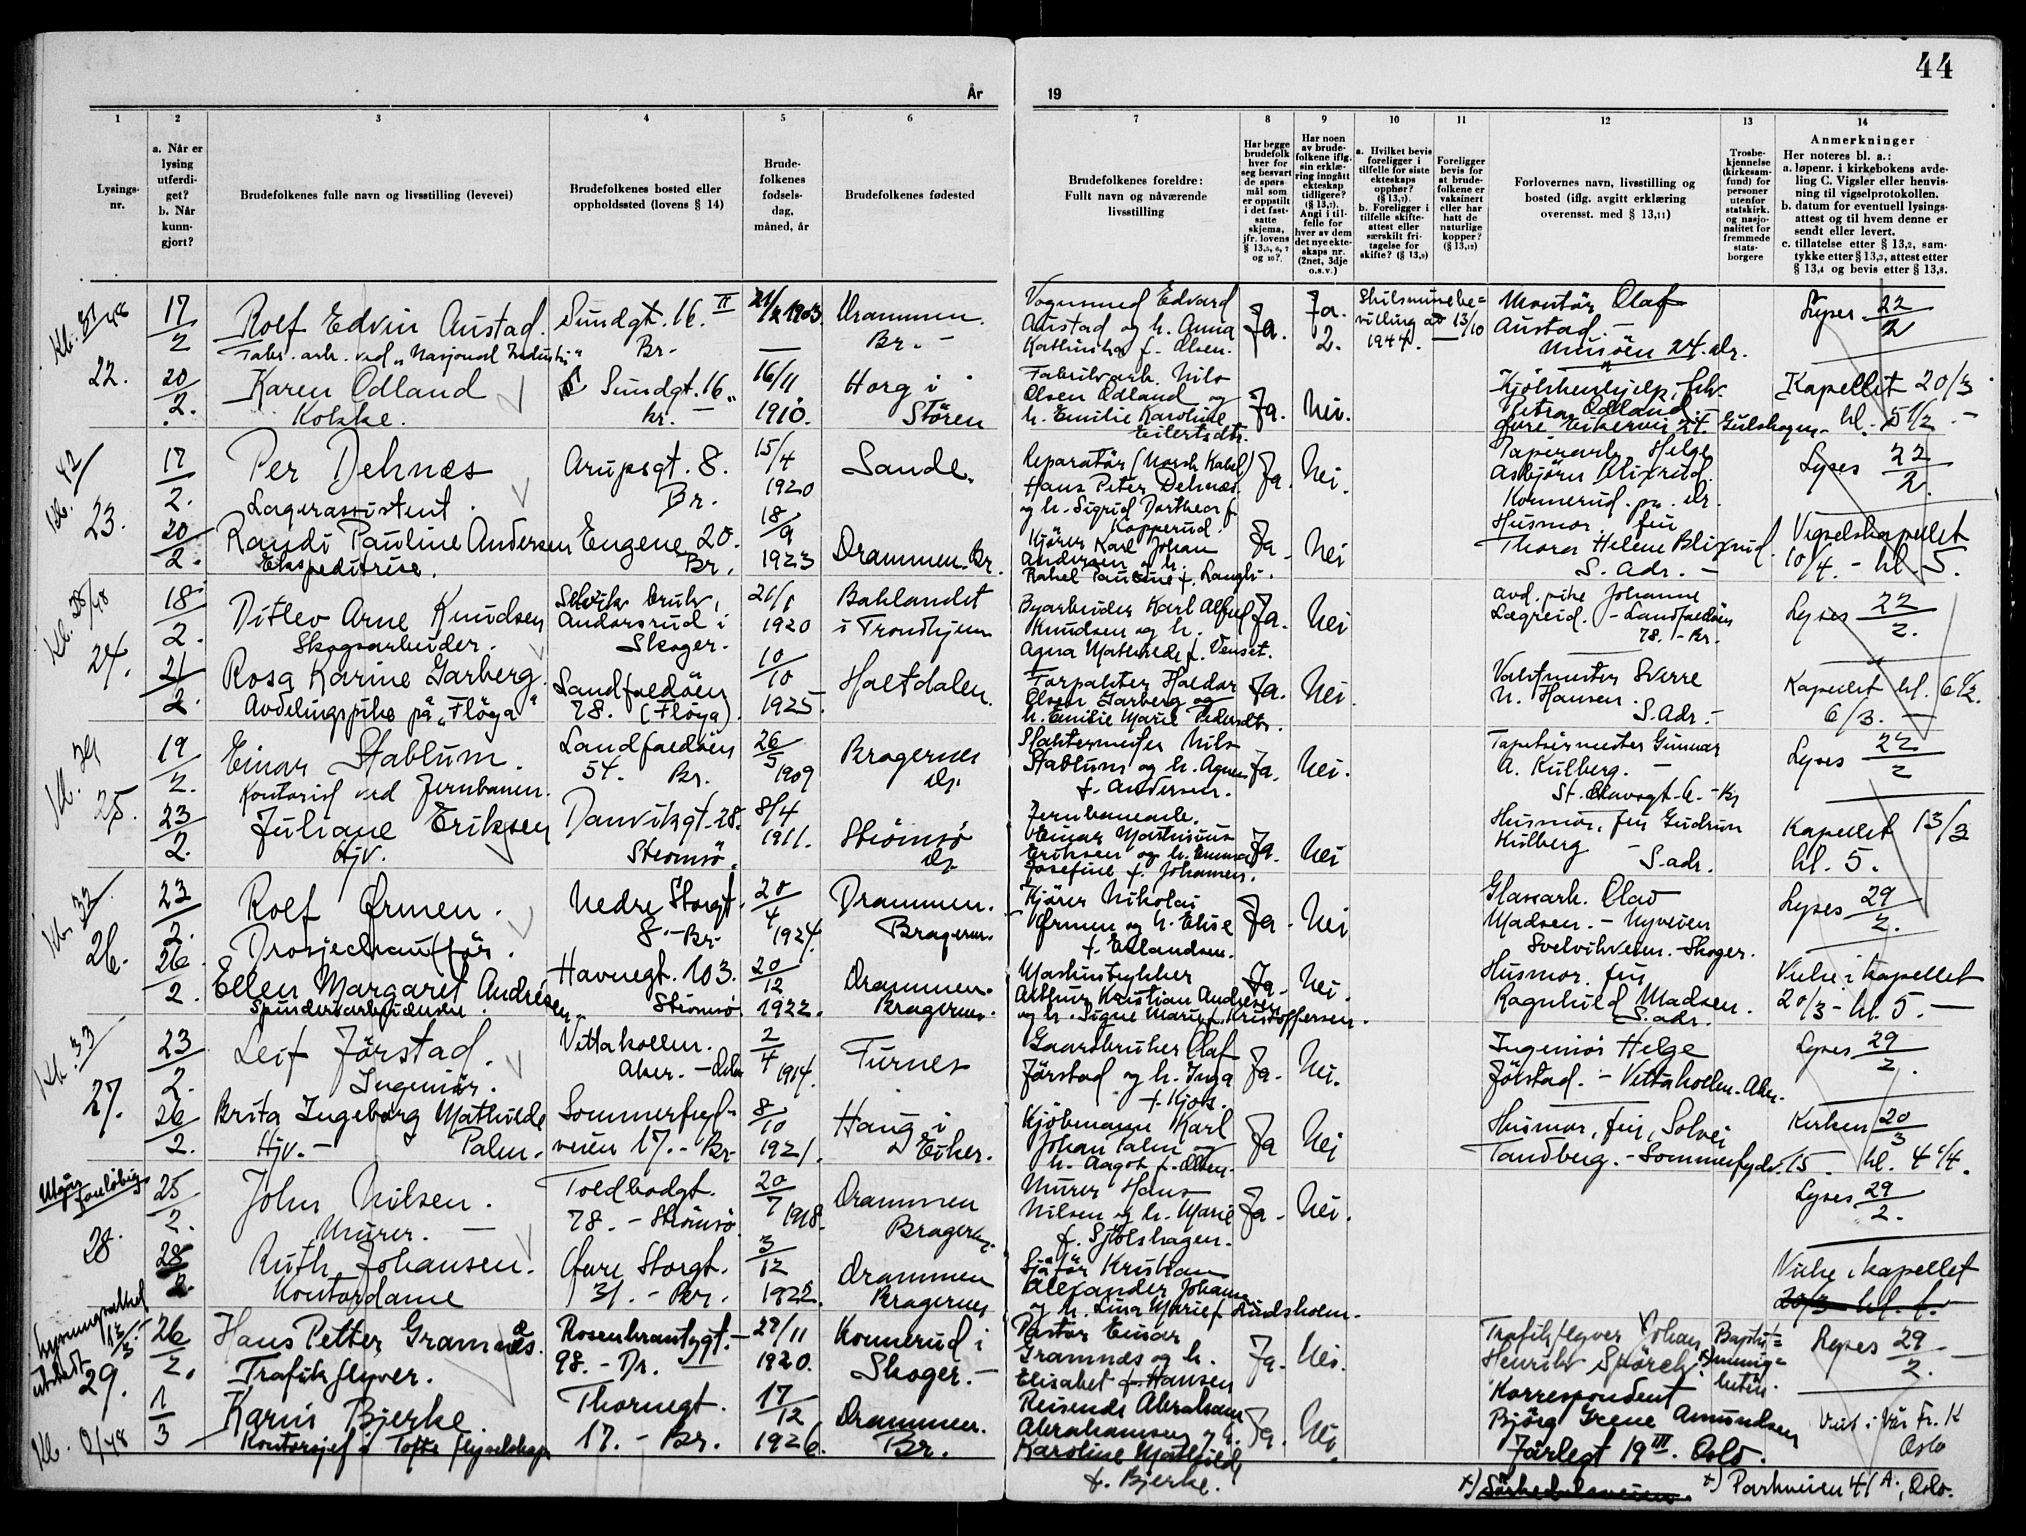 44
År
19
1
2
3
4
5
6
7
8
9
10
11
12
13
14
Lysings-
nr.
a. Når er
lysing
utferdi-
get?
b. Når
kunn-
gjort?
Brudefolkenes fulle navn og livsstilling (levevei)
Brudefolkenes bosted eller
oppholdssted (lovens § 14)
Brude-
folkenes
fødsels-
dag,
måned, år
Brudefolkenes fødested
Brudefolkenes foreldre:
Fullt navn og nåværende
livsstilling
Har begge
brudefolk
hver for
seg besvart
de spørs-
mål som
er oppstilt
i det fast-
satte
skjema,
jfr. lovens
§ 13,5, 6, 7
og 10?
Har noen
av brude-
folkene iflg.
sin erklæ-
ring inngått
ekteskap
tidligere?
(§ 13,7).
Angi i til-
felle for
hver av dem
det nye ekte-
skaps nr.
(2net, 3dje
o.s.v.)
a. Hvilket bevis
foreligger i
tilfelle for siste
ekteskaps
opphør?
(§ 13,7).
b. Foreligger i
tilfelle skifte-
attest eller
særskilt fri-
tagelse for
skifte? (§ 13,9)
Foreligger
bevis for
at brude-
folkene er
vaksinert
eller har
hatt de
naturlige
kopper?
(§ 13,12)
Forlovernes navn, livsstilling og
bosted (iflg. avgitt erklæring
overensst. med § 13,11)
Trosbe-
kjennelse
(kirkesam-
fund) for
personer
utenfor
statskirk.
og nasjo-
nalitet for
fremmede
stats-
borgere
Anmerkninger
Her noteres bl. a.:
a. løpenr. i kirkebokens avde-
ling C. Vigsler eller henvis-
ning til vigselprotokollen.
b. datum for eventuell lysings-
attest og til hvem denne er
sendt eller levert.
c. tillatelse etter § 13,2, sam-
tykke etter § 13,3, attest etter
§ 13,4 og bevis etter § 13,8.
22.
17/2
Rolf Edvin Austad.
Fabr. arb. ved "Nasjonal Industri"
Sundgt. 16. II
Br.
21/2 1903
Drammen.
Br. -
Vognmand Edvard
Austad og h. Anna
Kathinka f. Olsen.
Ja.
Ja.
2.
Skilsmissebe=
villing av 13/10
1944.
Montør Olaf
Austad. -
Musöen 24. dr.
Lyses 22/2
20/2.
Karen Ödland
Kokke.
Sundgt. 16.
Br. -
16/11
1910.
Horg i
Stören
Fabrikarb. Nils
Olsen Ödland og
h. Emilie Karoline
Eilertsdtr.
Ja.
Nei.
Kjökkenhjelp, frk.
Petra Ödland
Øvre Eikervei 27. Gulskogen.
Kapellet 20/3
kl. 5 1/2 -
23.
17/2.
Per Dehnæs
Lagerassistent.
Arupsgt. 8.
Br.
15/4
1920
Sande.
Reparatör (Norsk Kabel)
Hans Peter Dehnæs
og h. Sigrid Dorthea f.
Kopperud.
Ja.
Nei.
Papirarb. Helge
Asbjörn Blixrud.
Konnerud. pr. dr.
Lyses 22/2
20/2.
Randi Pauline Andersen
Ekspeditrise.
Eugene 20.
Br.
18/9
1923
Drammen. Br.
Kjörer Karl Johan
Andersen og h.
Rakel Pauline f. Langli.
Ja.
Nei
Husmor, fru
Thora Helene Blixrud.
S. adr. -
Vigselskapellet
10/4. - kl. 5.
24.
18/2.
Ditlev Arne Knudsen
Skogsarbeider.
Selvik bruk,
Andorsrud i
Skoger.
21/1
1920
Baklandet
i Trondhjem
Byarbeider Karl Alfred
Knudsen og h.
Agna Mathilde f. Venset.
Ja.
Nei
avd. pike Johanne
Lægreid. - Landfaldöen
78. - Br.
Lyses 22/2.
21/2
Rosa Karine Garberg.
Avdelingspike på "Flöya"
Landfaldöen
78. (Flöya).
10/10
1925.
Haltdalen
Forpakter Haldor
Olsen Garberg og
h. Emilie Marie Pedersdtr.
Ja.
Nei.
Vaktmester Sverre
N. Hansen.
S. Adr. -
Kapellet kl. 6 1/2.
6/3. -
25.
19/2.
Einar Stablum.
Kontorist ved Jernbanen.
Landfaldöen
54. Br.
26/5
1909
Bragernes
Slaktermester Nils
Stablum og h. Agnes
f. Andersen.
Ja.
Nei.
Tapetsermester Gunnar
A. Kulberg. -
St. Olavsgt. 6. - Br
Lyses 22/2
23/2.
Juliane Eriksen
Hjv.
Danvikgt. 28.
Strömsö.
8/4
1911.
Strömsö
Jernbanearb.
Einar Mathinius
Eriksen og h. Emma
Josefine f. Johansen.
Ja.
Nei
Husmor, fru Gudrun
Kulberg
S. adr.
Kapellet 13/3
kl. 5.
26.
23/2.
Rolf Ørmen.
Drosjechaufför.
Nedre Storgt.
8. - Br.
20/4
1924.
Drammen.
Bragernes.
Kjörer Nikolai
Ørmen og h. Elise
f. Erlandsen.
Ja.
Nei
Glassarb. Olav
Madsen. - Nyveien
Svelvikveien. - Skoger.
Lyses 29/2.
26/2.
Ellen Margaret Andrésen
Spinderiarbeiderske.
Havnegt. 103.
Strömsö
20/12
1922.
Drammen.
Bragernes.
Maskintrykker
Arthur Kristian Andresen
og h. Signe Marie f. Kristoffersen.
Ja.
Nei.
Husmor, fru
Ragnhild Madsen.
S. adr.
Vielse i kapellet
20/3 - kl. 5. -
27.
23/2.
Leif Jörstad.
Ingeniör.
Vettakollen.
Aker. - Oslo
2/4
1914.
Furnes
Gaardbruker Olaf
Jörstad og h. Inga
f. Kjos.
Ja.
Nei.
Ingeniör Helge
Jörstad. - Vettakollen. Aker.
Lyses 29/2.
26/2.
Brita Ingeborg Mathilde
Hjv. - Palm.
Sommerfryd-
veien 17. - Br.
8/10
1921.
Haug i
Eiker.
Kjöbmann Karl
Johan Palm og
h. Aagot f. Olsen.
Ja
Nei
Husmor, fru, Solvei
Tandberg. - Sommerfrydv. 15.
Kirken 20/3
kl. 4 1/4.
Utgår foreløbig
28.
25/2.
John Nilsen.
Murer. -
Toldbodgt.
78. - Strömsö
20/7
1918.
Drammen
Bragernes
Murer Hans
Nilsen og h. Marie
f. Sjölshagen.
Ja.
Nei.
Lyses 29/2.
28/2
Ruth Johansen.
Kontordame
Øvre Storgt.
31. - Br.
3/12
1922.
Drammen
Bragernes
Sjåför Kristian
Alexander Johansen
og h. Lina Marie f. Lindsholm.
Vielse i kapellet
20/3 kl. 6.
Lysningsattest
utstedt 13/3
29.
26/2.
Hans Petter Gramnæs.
Trafikflyver.
Rosenkrantzgt. -
98. - Dr. -
27/11
1920.
Konnerud i
Skoger. -
Pastor Einar
Gramnæs og h.
Elisabet f. Hansen
Ja.
Nei.
Trafikflyver Johan
Henrik Störck. x)
Baptist=
menig=
heten.
Lyses 29/2. -
1/3
Karin Bjerke
Kontorsjef i Tofts flyselskap
Thornegt.
17. - Br.
17/12
1926.
Drammen.
Br.
Reisende Abraham
Abrahamsen og h.
Karoline Mathilde
f. Bjerke.
Ja.
Nei.
Korrespondent
Björg Irene Amundsen
Jarlegt 19 III. Oslo.
Viet i Vår Fr. K
Oslo
x) Sörkedalsveien. x) Parkveien 41 A., Oslo.